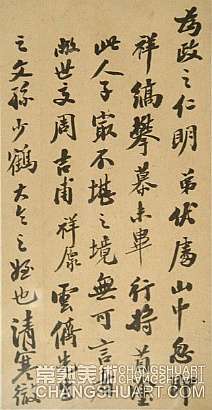 為政之仁明弟伏處山中忽聞
祥縞攀慕未畢行將首
此人子最不堪之境無可言
敝世交周吉甫祥廉雲儕先
之文孫少鶴大令之姪也清寒徹
常熟美術
CHANGSHUART
CHANGSHUART.COM